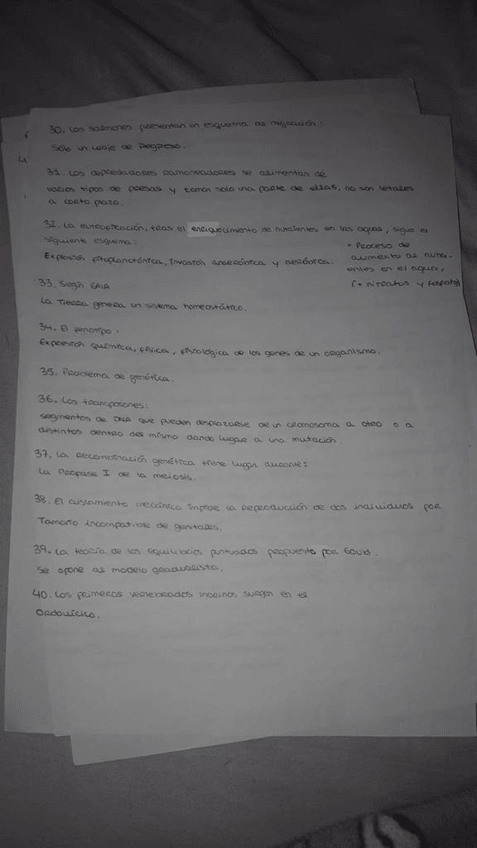 30. Los salmones presentan un esquema de migración:
Sólo un viaje de Regreso.
31. Los depredadores ramoneadores se alimentan de
varios tipos de presas y toman solo una parte de ellas, no son letales
a corto plazo.
32. La eutrofización, tras el enriquecimiento de nutrientes en las aguas, sigue el
siguiente esquema:
Explosión fitoplanctónica, Invasión anaeróbica y aeróbica.
* Proceso de
aumento de nutri-
entes en el agua,
(+ nitratos y fosfatos)
33. Según GAIA
La Tierra genera un sistema homeostático.
34. El fenotipo:
Expresión química, física, fisiológica de los genes de un organismo.
35. Problema de genética.
36. Los transposones:
segmentos de DNA que pueden desplazarse de un cromosoma a otro o a
distintos dentro del mismo dando lugar a una mutación.
37. La Recombinación genética tiene lugar durante:
La Profase I de la meiosis.
38. El aislamiento mecánico impide la Reproducción de dos individuos por
Tamaño incompatible de genitales.
39. La teoría de los Equilibrios puntuados propuesto por Gould.
Se opone al modelo gradualista.
40. Los primeros vertebrados marinos surgen en el
Ordovícico.